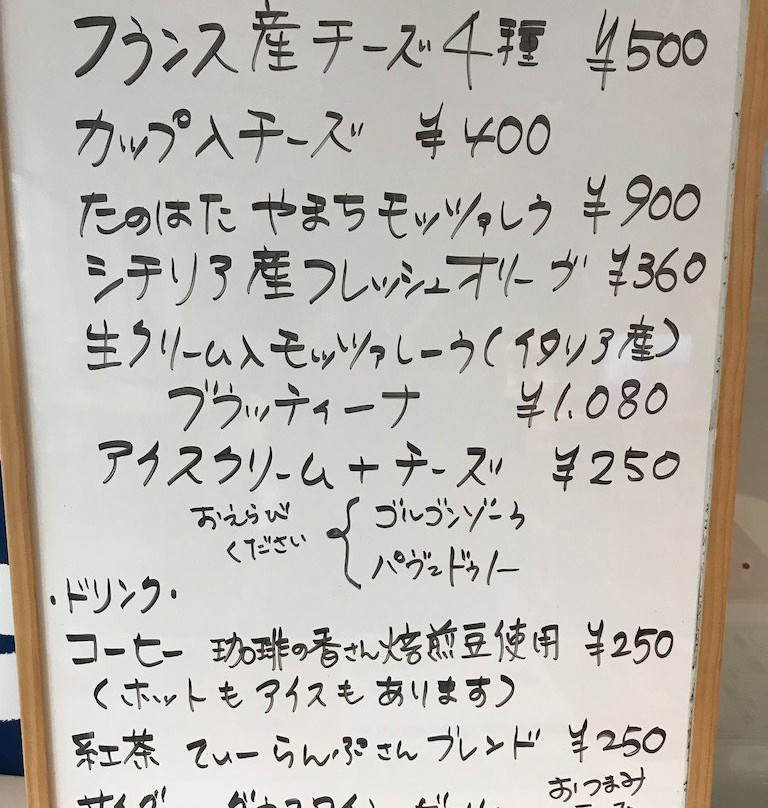 フランス産チーズ4種 ¥500
カップ入チーズ ¥400
たのはた やまちモッツァレラ ¥900
シチリア産フレッシュオリーヴ ¥360
生クリーム入モッツァレーラ(イタリア産)
ブラッティーナ ¥1.080
アイスクリーム+チーズ ¥250
おえらび
ください
ゴルゴンゾーラ
パヴェドゥノー
・ドリンク・
コーヒー 珈琲の香さん焙煎豆使用 ¥250
(ホットもアイスもあります)
紅茶 てぃーらんぷさんブレンド ¥250
おつまみ